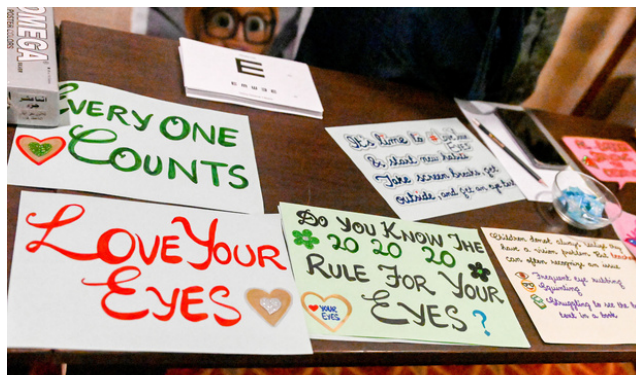 OMEGA
E
EVERY ONE
COUNTS
It's time to
& start new habits
Take screen breaks, get
outside, and get an eye test
LOVE YOUR
EYES
DO YOU KNOW THE
20 20 20
RULE FOR YOUR
EYES?
Children donot always realise they
have a vision problem. But teachers
can often recognise an issue
Frequent eye rubbing
Squinting
Struggling to see the
text in a book